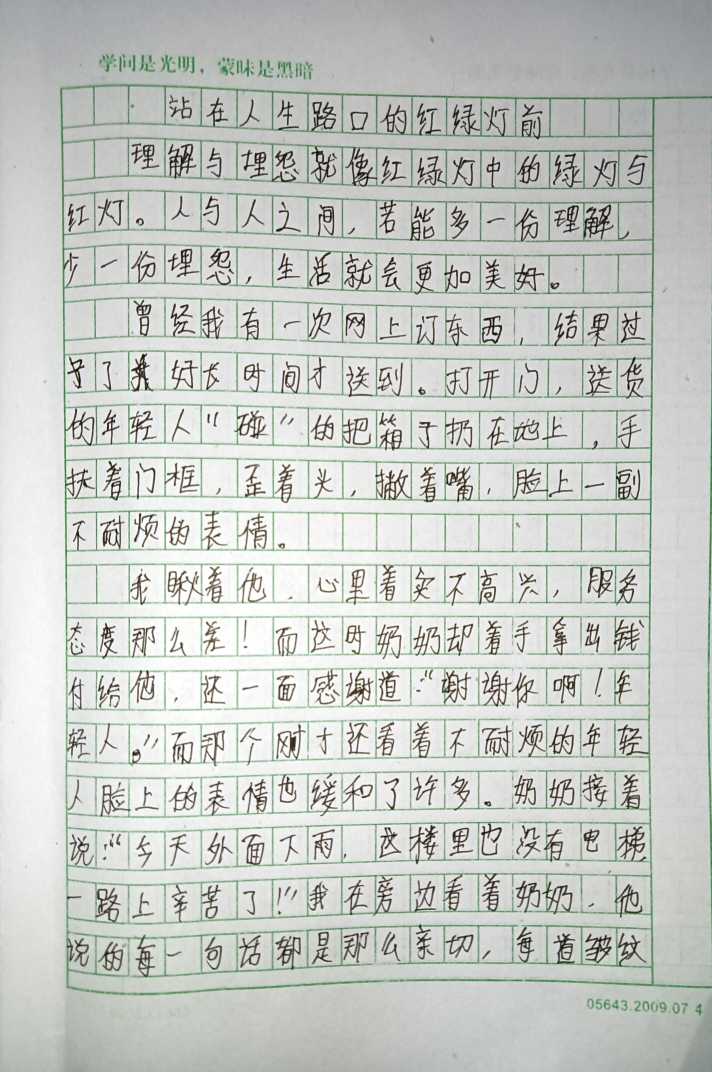 学问是光明，蒙昧是黑暗
站在人生路口的红绿灯前
理解与埋怨就像红绿灯中的绿灯与
红灯。人与人之间，若能多一份理解，
少一份埋怨，生活就会更加美好。
曾经我有一次网上订东西，结果过
了好长时间才送到。打开门，送货
的年轻人“碰”的把箱子扔在地上，手
扶着门框，歪着头，撇着嘴，脸上一副
不耐烦的表情。
我瞅着他，心里着实不高兴，服务
态度那么差！而这时奶奶却着手拿出钱
付给他，还一面感谢道：“谢谢你啊！年
轻人。”而那个刚才还看着不耐烦的年轻
人脸上的表情也缓和了许多。奶奶接着
说：“今天外面下雨，这楼里也没有电梯
一路上辛苦了！”我在旁边看着奶奶，他
说的每一句话都是那么亲切，每道皱纹
05643.2009.07 4